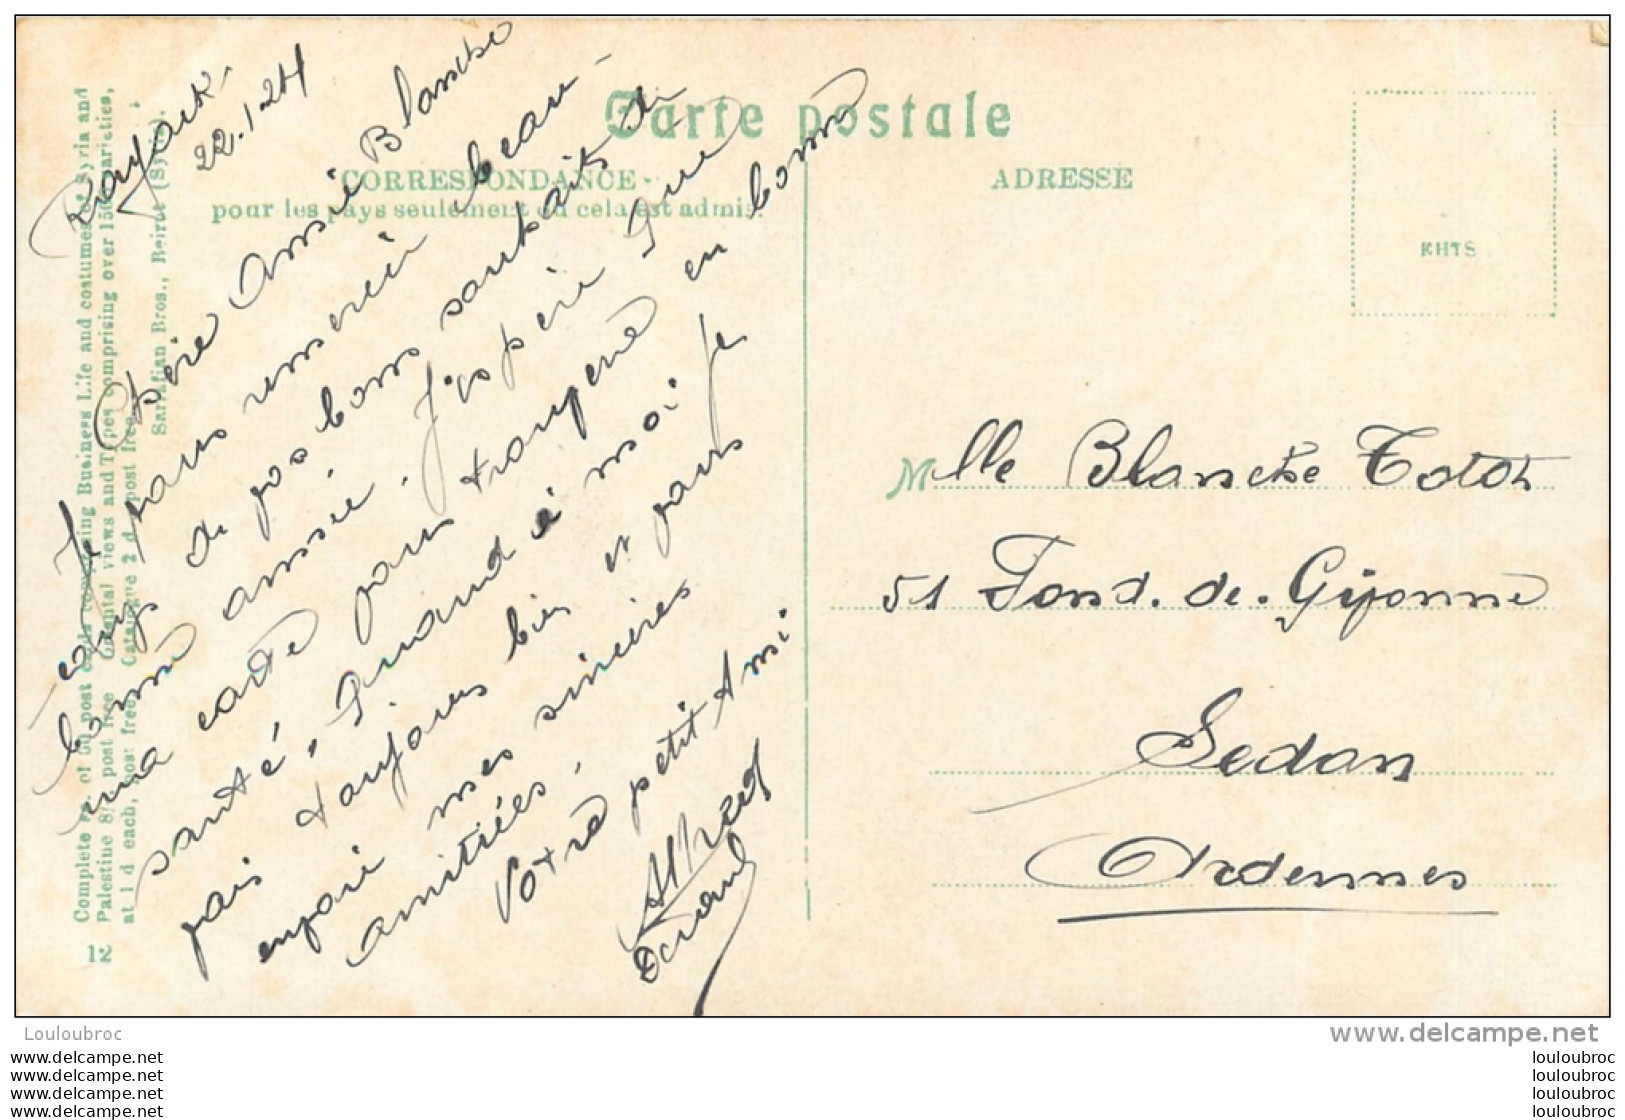 Carte postale
CORRESPONDANCE
pour les pays seulement où cela est admis.
ADRESSE
Rayack
22.1.24
Chère Amie Blanche
Je vous remercie beau-
coup de vos bons souhaits de
bonne année. J'espère que
ma carte vous trouvera en bonne
santé. Quand à moi je
vais toujours bien et vous
envoie mes sincères
amitiées.
Votre petit Ami
Alfred
Mlle Blanche Totot
51 Fond. de. Givonne
Sedan
Ardennes
12
Complete set of 50 post cards comprising Business Life and costumes of Syria and
Palestine 8/ post free Oriental views and Types comprising over 1500 varieties,
at 1 d each, post free. Catalogue 2 d post free.
Sarrafian Bros., Beirut (Syria).
Louloubroc
www.delcampe.net
www.delcampe.net
www.delcampe.net
www.delcampe.net
www.delcampe.net
louloubroc
louloubroc
louloubroc
louloubroc